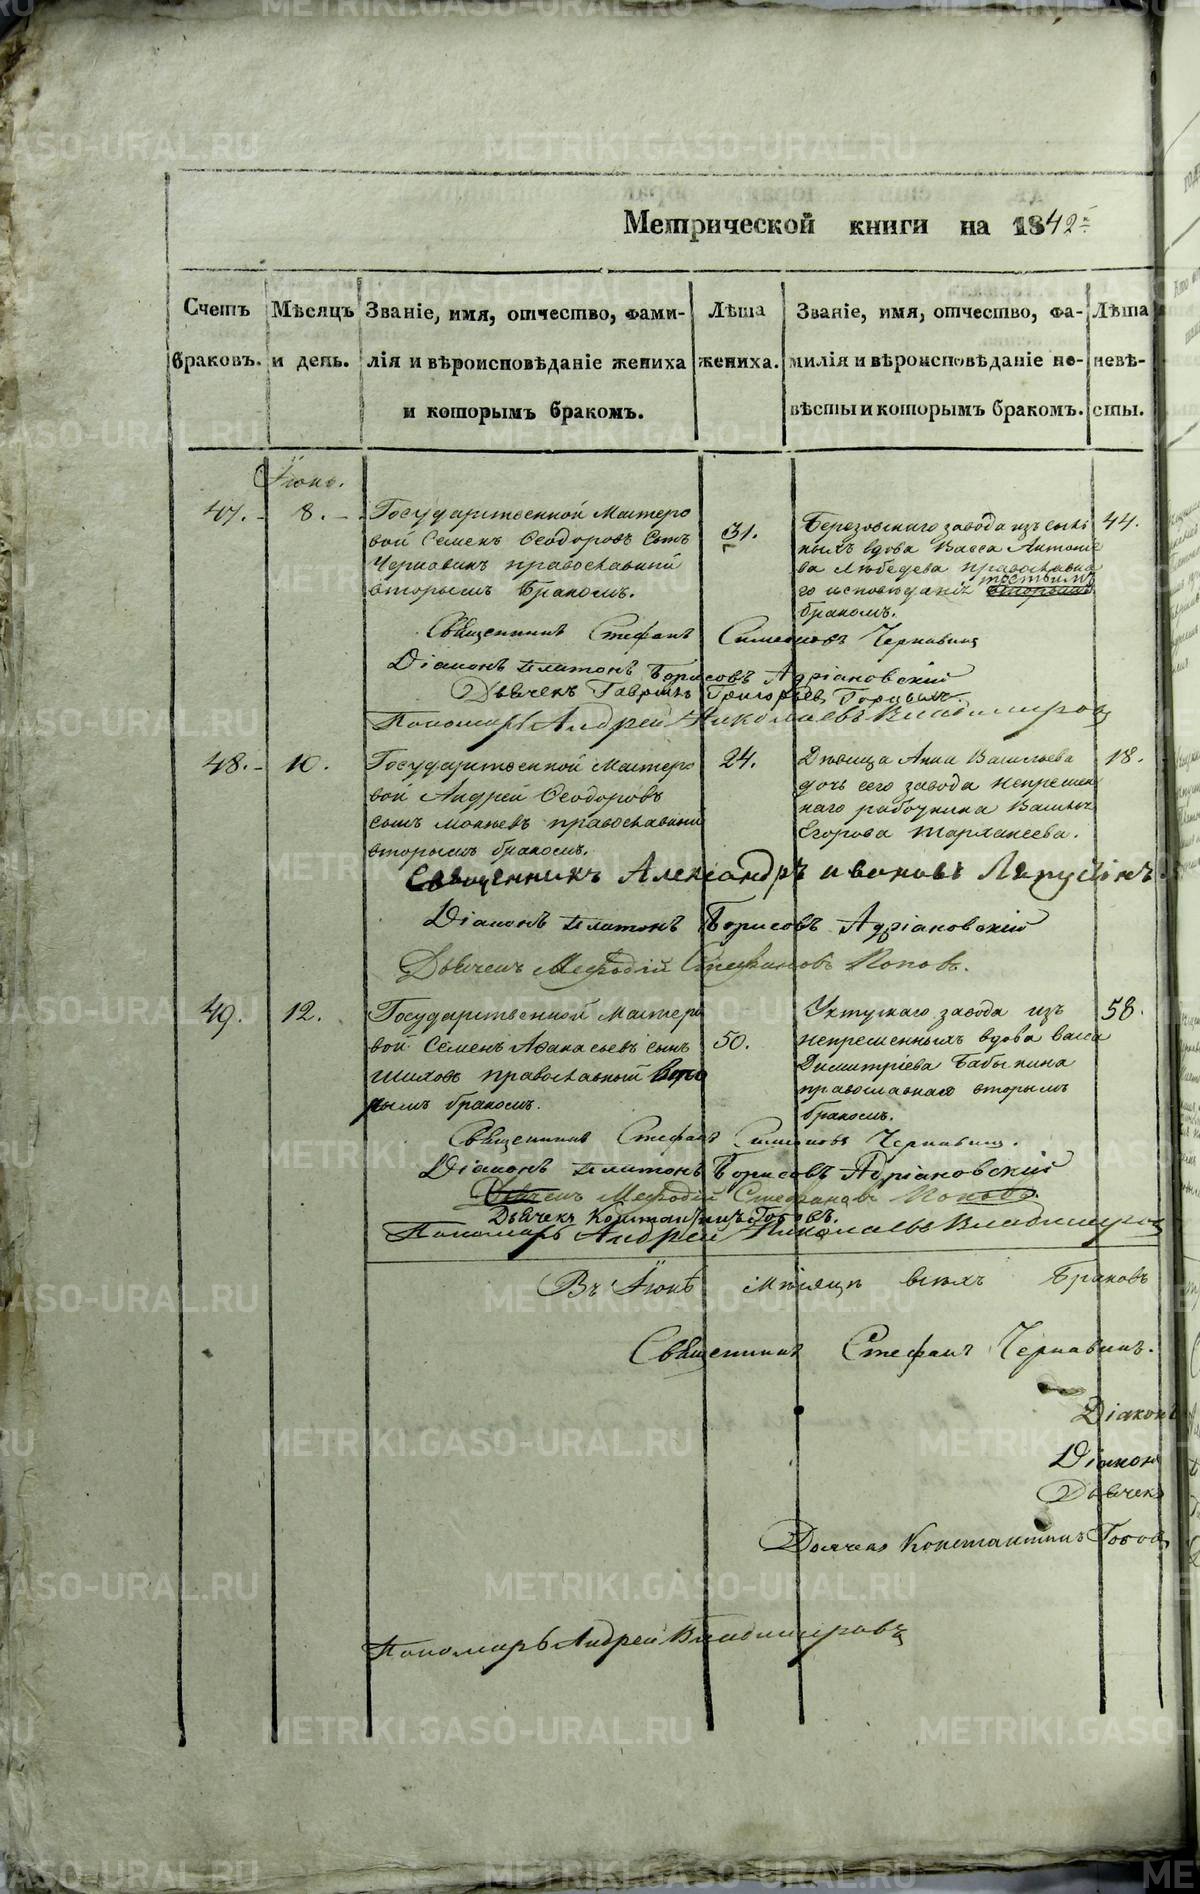 Метрической книги на 1842
Счетъ браковъ.
Мѣсяцъ и день.
Званіе, имя, отчество, фами-
лія и вѣроисповѣданіе жениха
и которымъ бракомъ.
Лѣта жениха.
Званіе, имя, отчество, фа-
милія и вѣроисповѣданіе не-
вѣсты и которымъ бракомъ.
Лѣта невѣ-
сты.
Іюнь.
47. 8.
Государственной Мастеро
вой Семенъ Ѳеодоровъ сынъ
православный
вторымъ бракомъ.
31.
Березовскаго завода изъ
вдова Васса Антоніе
ва православна
го исповѣданія третьимъ
бракомъ.
44.
Священникъ Стефанъ Симеоновъ Чернавинъ
Діаконъ Платонъ Борисовъ Адріановскій
Дьячекъ Гавріилъ Григорьевъ
Пономарь Андрей Николаевъ Владимировъ
48. 10.
Государственной Мастеро
вой Андрей Ѳеодоровъ
сынъ православный
вторымъ бракомъ.
24.
Дѣвица Анна Васильева
дочь сего завода непремен
наго работника Василья
Егорова
18.
Священникъ Александръ Ивановъ
Діаконъ Платонъ Борисовъ Адріановскій
Дьячекъ Меѳодій Стефановъ Поповъ.
49. 12.
Государственной Мастеро
вой Семенъ Аѳанасьевъ сынъ
Шиловъ православный вто
рымъ бракомъ.
50.
Уктускаго завода изъ
непременныхъ вдова Васса
Димитріева Бабыкина
православнаго вторымъ
бракомъ.
58.
Священникъ Стефанъ Симеоновъ Чернавинъ.
Діаконъ Платонъ Борисовъ Адріановскій
Дьячекъ Меѳодій Стефановъ Поповъ.
Дьячекъ Константинъ
Пономарь Андрей Николаевъ Владимировъ
Въ Іюнѣ мѣсяцѣ всѣхъ браковъ
Священникъ Стефанъ Чернавинъ.
Діаконъ
Діаконъ
Дьячекъ
Дьячекъ Константинъ
Пономарь Андрей Владимировъ
METRIKI.GASO-URAL.RU